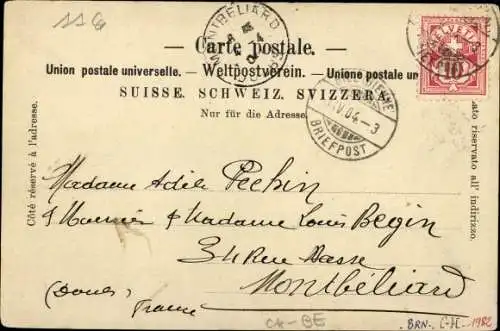 SS G
MONTBÉLIARD
— Carte postale. —
Union postale universelle. — Weltpostverein. — Unione postale un
SUISSE. SCHWEIZ. SVIZZERA.
Nur für die Adresse.
HELVETIA
10
IV 04.-3
BRIEFPOST
Côté réservé à l'adresse.
riservato all' indirizzo.
Madame Adèle Pechin
Monsieur & Madame Louis Begin
34 Rue Basse
Montbéliard
(Doubs)
France
CH-BE
BRN.-C-H-1982